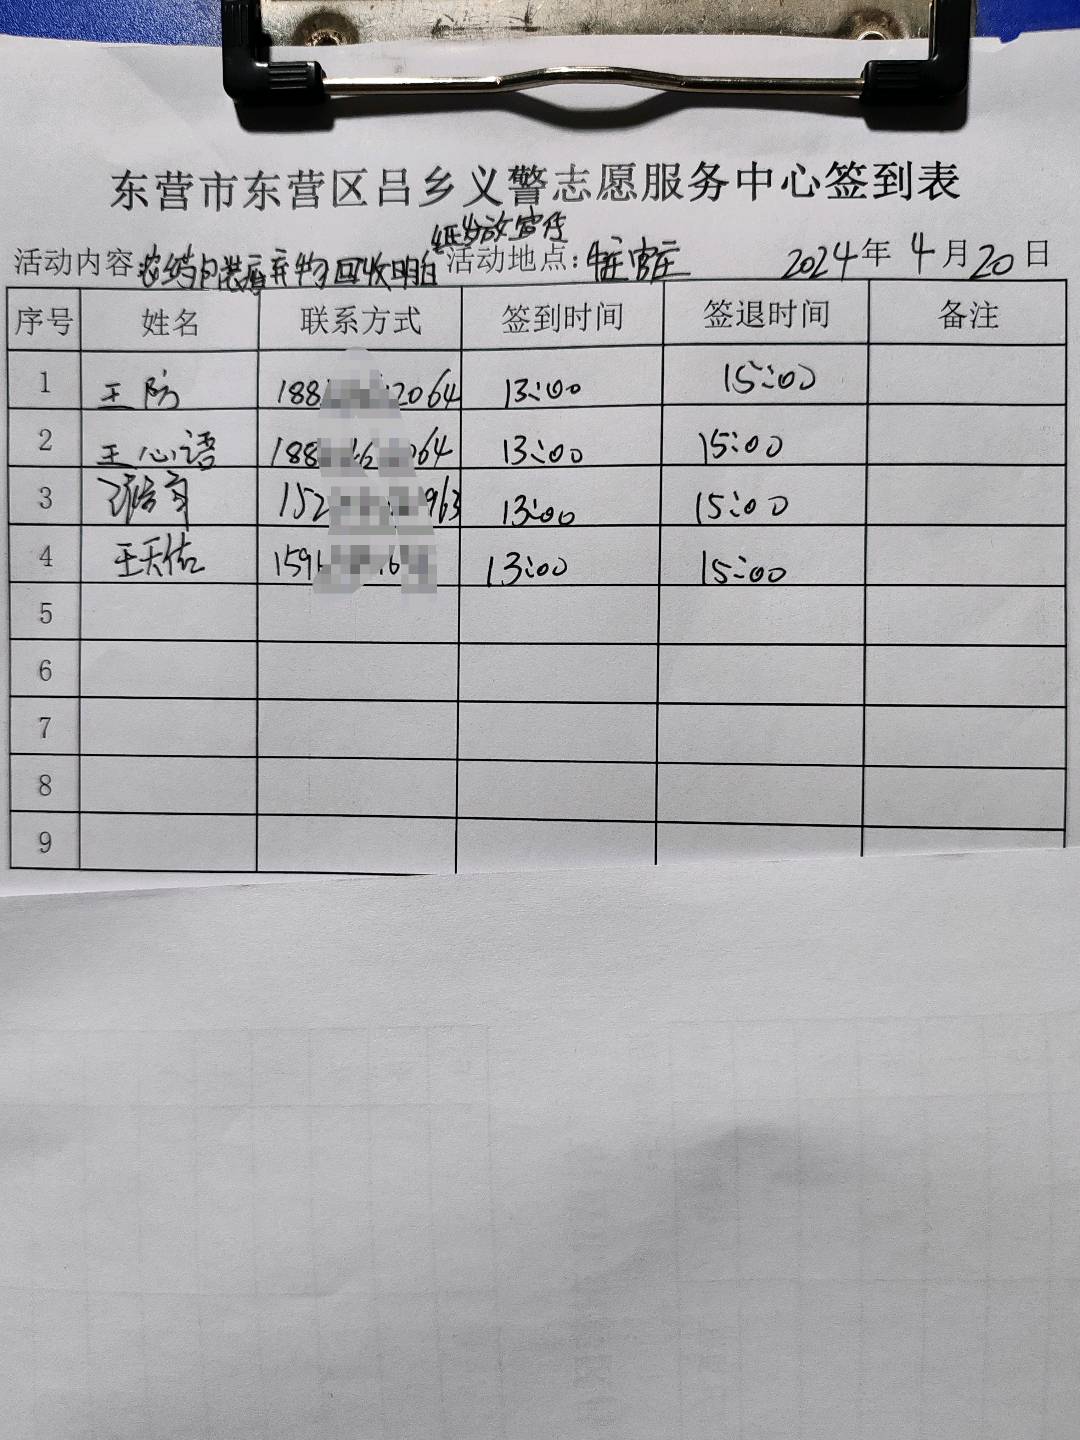 东营市东营区吕乡义警志愿服务中心签到表
纸发放宣传
活动内容:农药包装废弃物回收明白 活动地点: 2024年4月20日
序号 姓名 联系方式 签到时间 签退时间 备注
1 王防 188 2064 13:00 15:00
2 王心语 188 064 13:00 15:00
3 152 963 13:00 15:00
4 王天佑 159 13:00 15:00
5
6
7
8
9